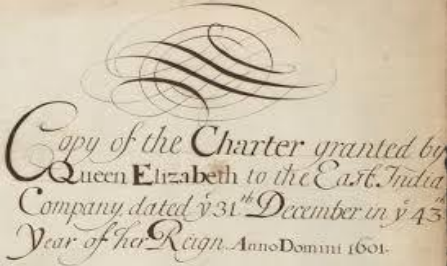 Copy of the Charter granted by
Queen Elizabeth to the East India
Company, dated ẙ 31th December in ẙ 43th
Year of her Reign. Anno Domini 1601.